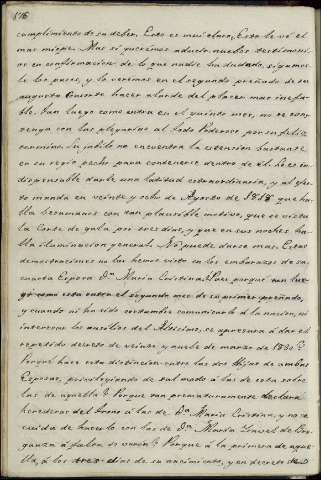 576
cumplimiento de su deber. Esto es mui claro, Esto lo vé el
mas miope. Mas si queremos aducir nuebos testimoni-
os en confirmacion de lo que nadie ha dudado, sigamos-
le los pasos, y lo veremos en el segundo preñado de su
augusta Consorte hacer alarde del placer mas inefa-
ble. Tan luego como entra en el quinto mes, no se con-
tenga con las plegarias al todo Poderoso por su feliz
termino. Su jubilo no encuentra la estencion bastante
en su regio pecho para contenerse dentro de él. Le es in-
dispensable darle una latitud extraordinaria, y al efec-
to manda en veinte y ocho de Agosto de 1818 que ha-
lla Besamanos con tan plausible motivo, que se vista
la Corte de gala por tres dias, y que en sus noches ha-
lla iluminacion general. No puede darse mas. Estas
demostraciones no las hemos visto en los embarazos de su
cuarta Esposa D.ª Maria Cristina. Pues porqué tan lue-
go como esta entra el segundo mes de su primer preñado,
y cuando ni ha sido costumbre comunicarlo á la nacion, ni
interesar los ausilios del Altisimo, se apresura á dar el
repetido decreto de veinte y nueve de marzo de 1830?
Porqué hace esta distincion entre las dos Hijas de ambas
Esposas, privilegiando de tal modo á las de esta sobre
las de aquella? Porque tan prematuramente declara
herederas del trono á las de D.ª Maria Cristina, y no se
cuida de hacerlo con las de D.ª Maria Isavel de Bra-
ganza á falta de varon? Porque á la primera de aque-
lla, á los tres dias de su nacimiento, y en decreto de